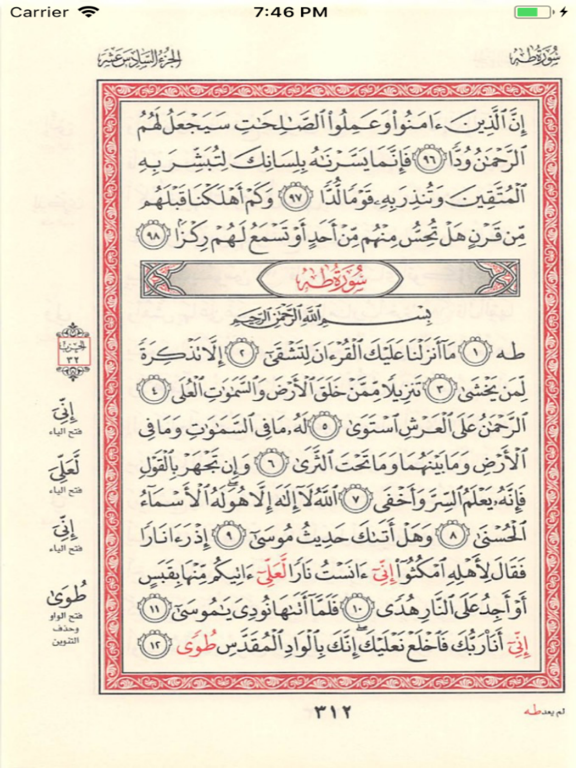 Carrier 7:46 PM
سُورَةُ طه
الجُزْءُ السَّادِسَ عَشَرَ
إِنَّ ٱلَّذِينَ ءَامَنُواْ وَعَمِلُواْ ٱلصَّٰلِحَٰتِ سَيَجْعَلُ لَهُمُ
ٱلرَّحْمَٰنُ وُدًّا ٩٦ فَإِنَّمَا يَسَّرْنَٰهُ بِلِسَانِكَ لِتُبَشِّرَ بِهِ
ٱلْمُتَّقِينَ وَتُنذِرَ بِهِۦ قَوْمًا لُّدًّا ٩٧ وَكَمْ أَهْلَكْنَا قَبْلَهُم
مِّن قَرْنٍ هَلْ تُحِسُّ مِنْهُم مِّنْ أَحَدٍ أَوْ تَسْمَعُ لَهُمْ رِكْزَۢا ٩٨
سُورَةُ طه
بِسْمِ ٱللَّهِ ٱلرَّحْمَٰنِ ٱلرَّحِيمِ
طه ١ مَآ أَنزَلْنَا عَلَيْكَ ٱلْقُرْءَانَ لِتَشْقَىٰٓ ٢ إِلَّا تَذْكِرَةً
لِّمَن يَخْشَىٰ ٣ تَنزِيلًا مِّمَّنْ خَلَقَ ٱلْأَرْضَ وَٱلسَّمَٰوَٰتِ ٱلْعُلَى ٤
ٱلرَّحْمَٰنُ عَلَى ٱلْعَرْشِ ٱسْتَوَىٰ ٥ لَهُۥ مَا فِى ٱلسَّمَٰوَٰتِ وَمَا فِى
ٱلْأَرْضِ وَمَا بَيْنَهُمَا وَمَا تَحْتَ ٱلثَّرَىٰ ٦ وَإِن تَجْهَرْ بِٱلْقَوْلِ
فَإِنَّهُۥ يَعْلَمُ ٱلسِّرَّ وَأَخْفَى ٧ ٱللَّهُ لَآ إِلَٰهَ إِلَّا هُوَ لَهُ ٱلْأَسْمَآءُ
ٱلْحُسْنَىٰ ٨ وَهَلْ أَتَىٰكَ حَدِيثُ مُوسَىٰٓ ٩ إِذْ رَءَا نَارًا
فَقَالَ لِأَهْلِهِ ٱمْكُثُوٓاْ إِنِّىَ ءَانَسْتُ نَارًا لَّعَلِّىَ ءَاتِيكُم مِّنْهَا بِقَبَسٍ
أَوْ أَجِدُ عَلَى ٱلنَّارِ هُدًى ١٠ فَلَمَّآ أَتَىٰهَا نُودِىَ يَٰمُوسَىٰٓ ١١
إِنِّىَ أَنَا۠ رَبُّكَ فَٱخْلَعْ نَعْلَيْكَ إِنَّكَ بِٱلْوَادِ ٱلْمُقَدَّسِ طُوَى ١٢
الحزب
٣٢
إِنِّيَ
فتح الياء
لَّعَلِّيَ
فتح الياء
إِنِّيَ
فتح الياء
طُوَىٰ
فتح الواو
وحذف
التنوين
لم يعد طه
٣١٢